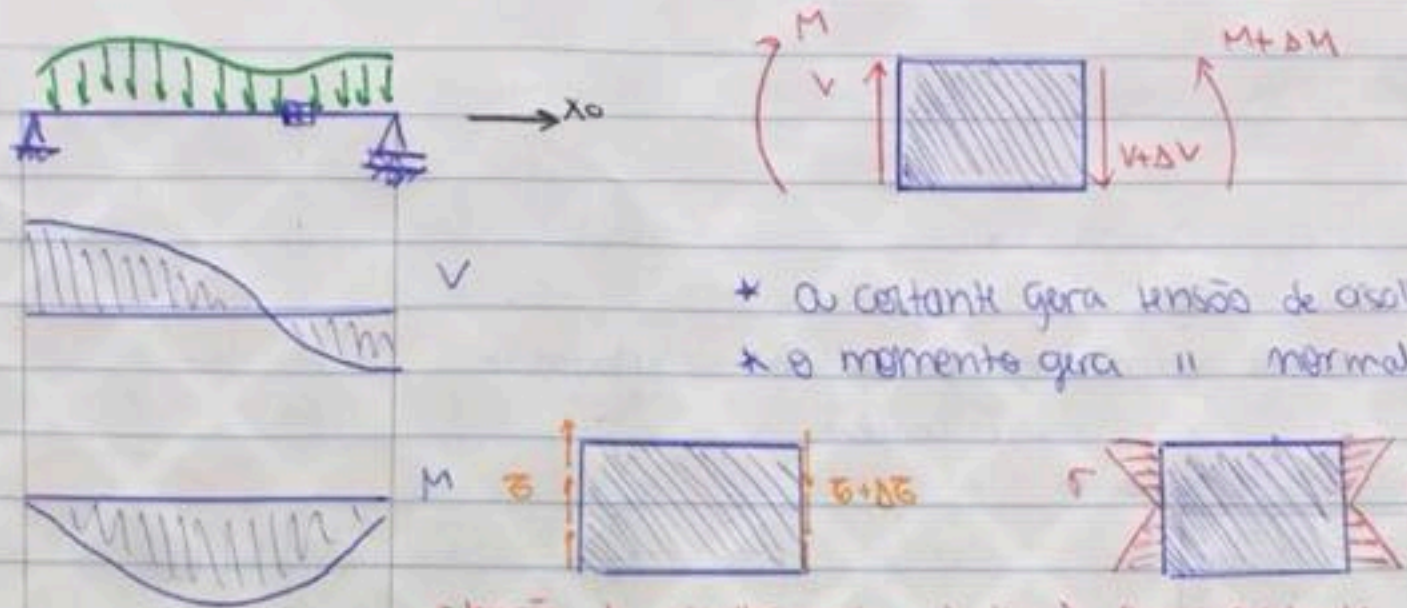 M
M+ΔM
V
V+ΔV
x₀
V
* a cortante gera tensão de cisal
* o momento gera " normal
M
τ
τ+Δτ
σ